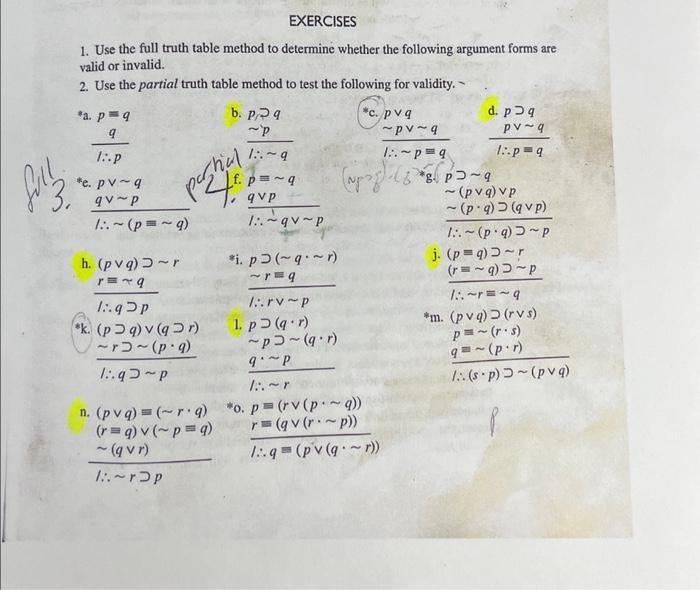 EXERCISES
1. Use the full truth table method to determine whether the following argument forms are
valid or invalid.
2. Use the partial truth table method to test the following for validity.
*a. p ≡ q
q
/∴ p
b. p ⊃ q
~p
/∴ ~q
*c. p ∨ q
~p ∨ ~q
/∴ ~p ≡ q
d. p ⊃ q
p ∨ ~q
/∴ p ≡ q
full
3.
*e. p ∨ ~q
q ∨ ~p
/∴ ~(p ≡ ~q)
partial
f. p ≡ ~q
q ∨ p
/∴ ~q ∨ ~p
*g. p ⊃ ~q
~(p ∨ q) ∨ p
~(p · q) ⊃ (q ∨ p)
/∴ ~(p · q) ⊃ ~p
h. (p ∨ q) ⊃ ~r
r ≡ ~q
/∴ q ⊃ p
*i. p ⊃ (~q · ~r)
~r ≡ q
/∴ r ∨ ~p
j. (p ≡ q) ⊃ ~r
(r ≡ ~q) ⊃ ~p
/∴ ~r ≡ ~q
*k. (p ⊃ q) ∨ (q ⊃ r)
~r ⊃ ~(p · q)
/∴ q ⊃ ~p
l. p ⊃ (q · r)
~p ⊃ ~(q · r)
q · ~p
/∴ ~r
*m. (p ∨ q) ⊃ (r ∨ s)
p ≡ ~(r · s)
q ≡ ~(p · r)
/∴ (s · p) ⊃ ~(p ∨ q)
n. (p ∨ q) ≡ (~r · q)
(r ≡ q) ∨ (~p ≡ q)
~(q ∨ r)
/∴ ~r ⊃ p
*o. p ≡ (r ∨ (p · ~q))
r ≡ (q ∨ (r · ~p))
/∴ q ≡ (p ∨ (q · ~r))
p